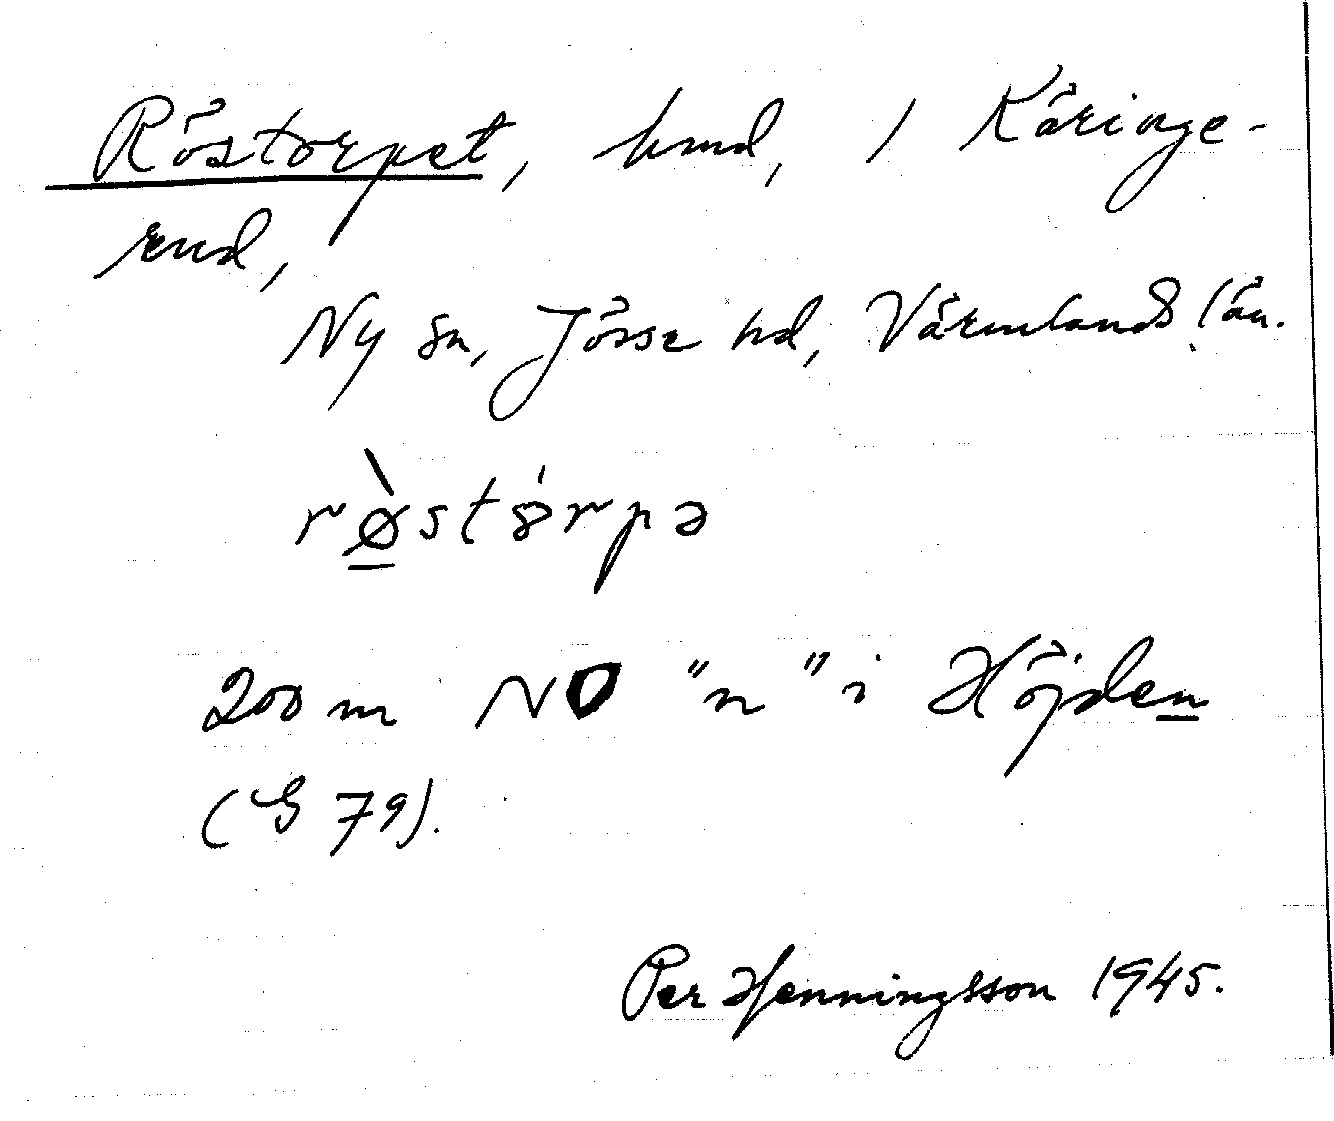 Röstorpet, hmd, 1 Käringe-
rud,
Ny sn, Jösse hd, Värmlands län.
rø̀stòrpə
200 m NO "n" i Höjden
(G 79).
Per Henningsson 1945.